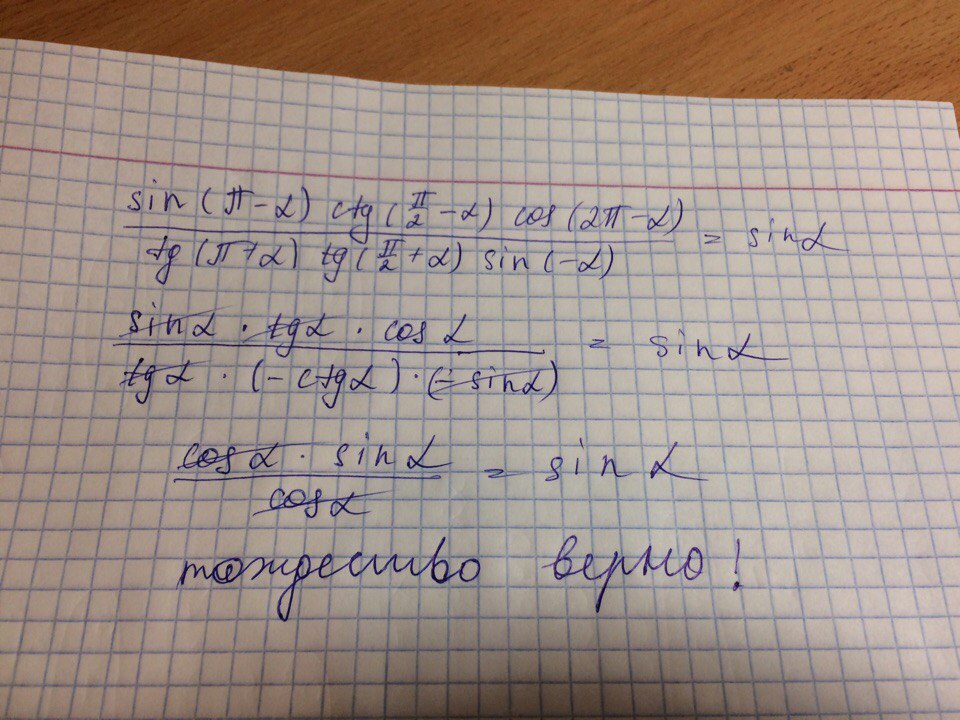 sin(π-α) ctg(π/2-α) cos(2π-α) / tg(π+α) tg(π/2+α) sin(-α) = sinα
sinα · tgα · cosα / tgα · (-ctgα) · (-sinα) = sinα
cosα · sinα / cosα = sinα
тождество верно!